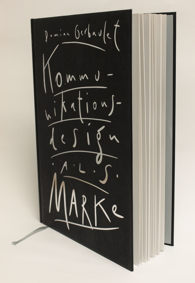 Damian Gerbaulet
Kommu-
nikations-
design
A.L.S.
MARKe